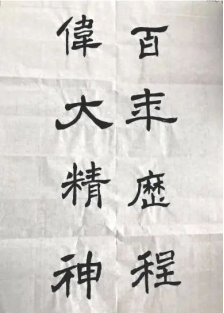 百年歷程
偉大精神